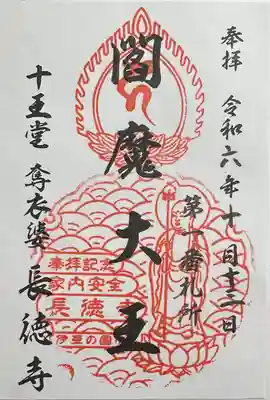 奉拝 令和六年十月十二日
第一番札所
閻魔大王
十王堂 奪衣婆 長徳寺
奉拝記念
家内安全
長徳寺
伊豆の國